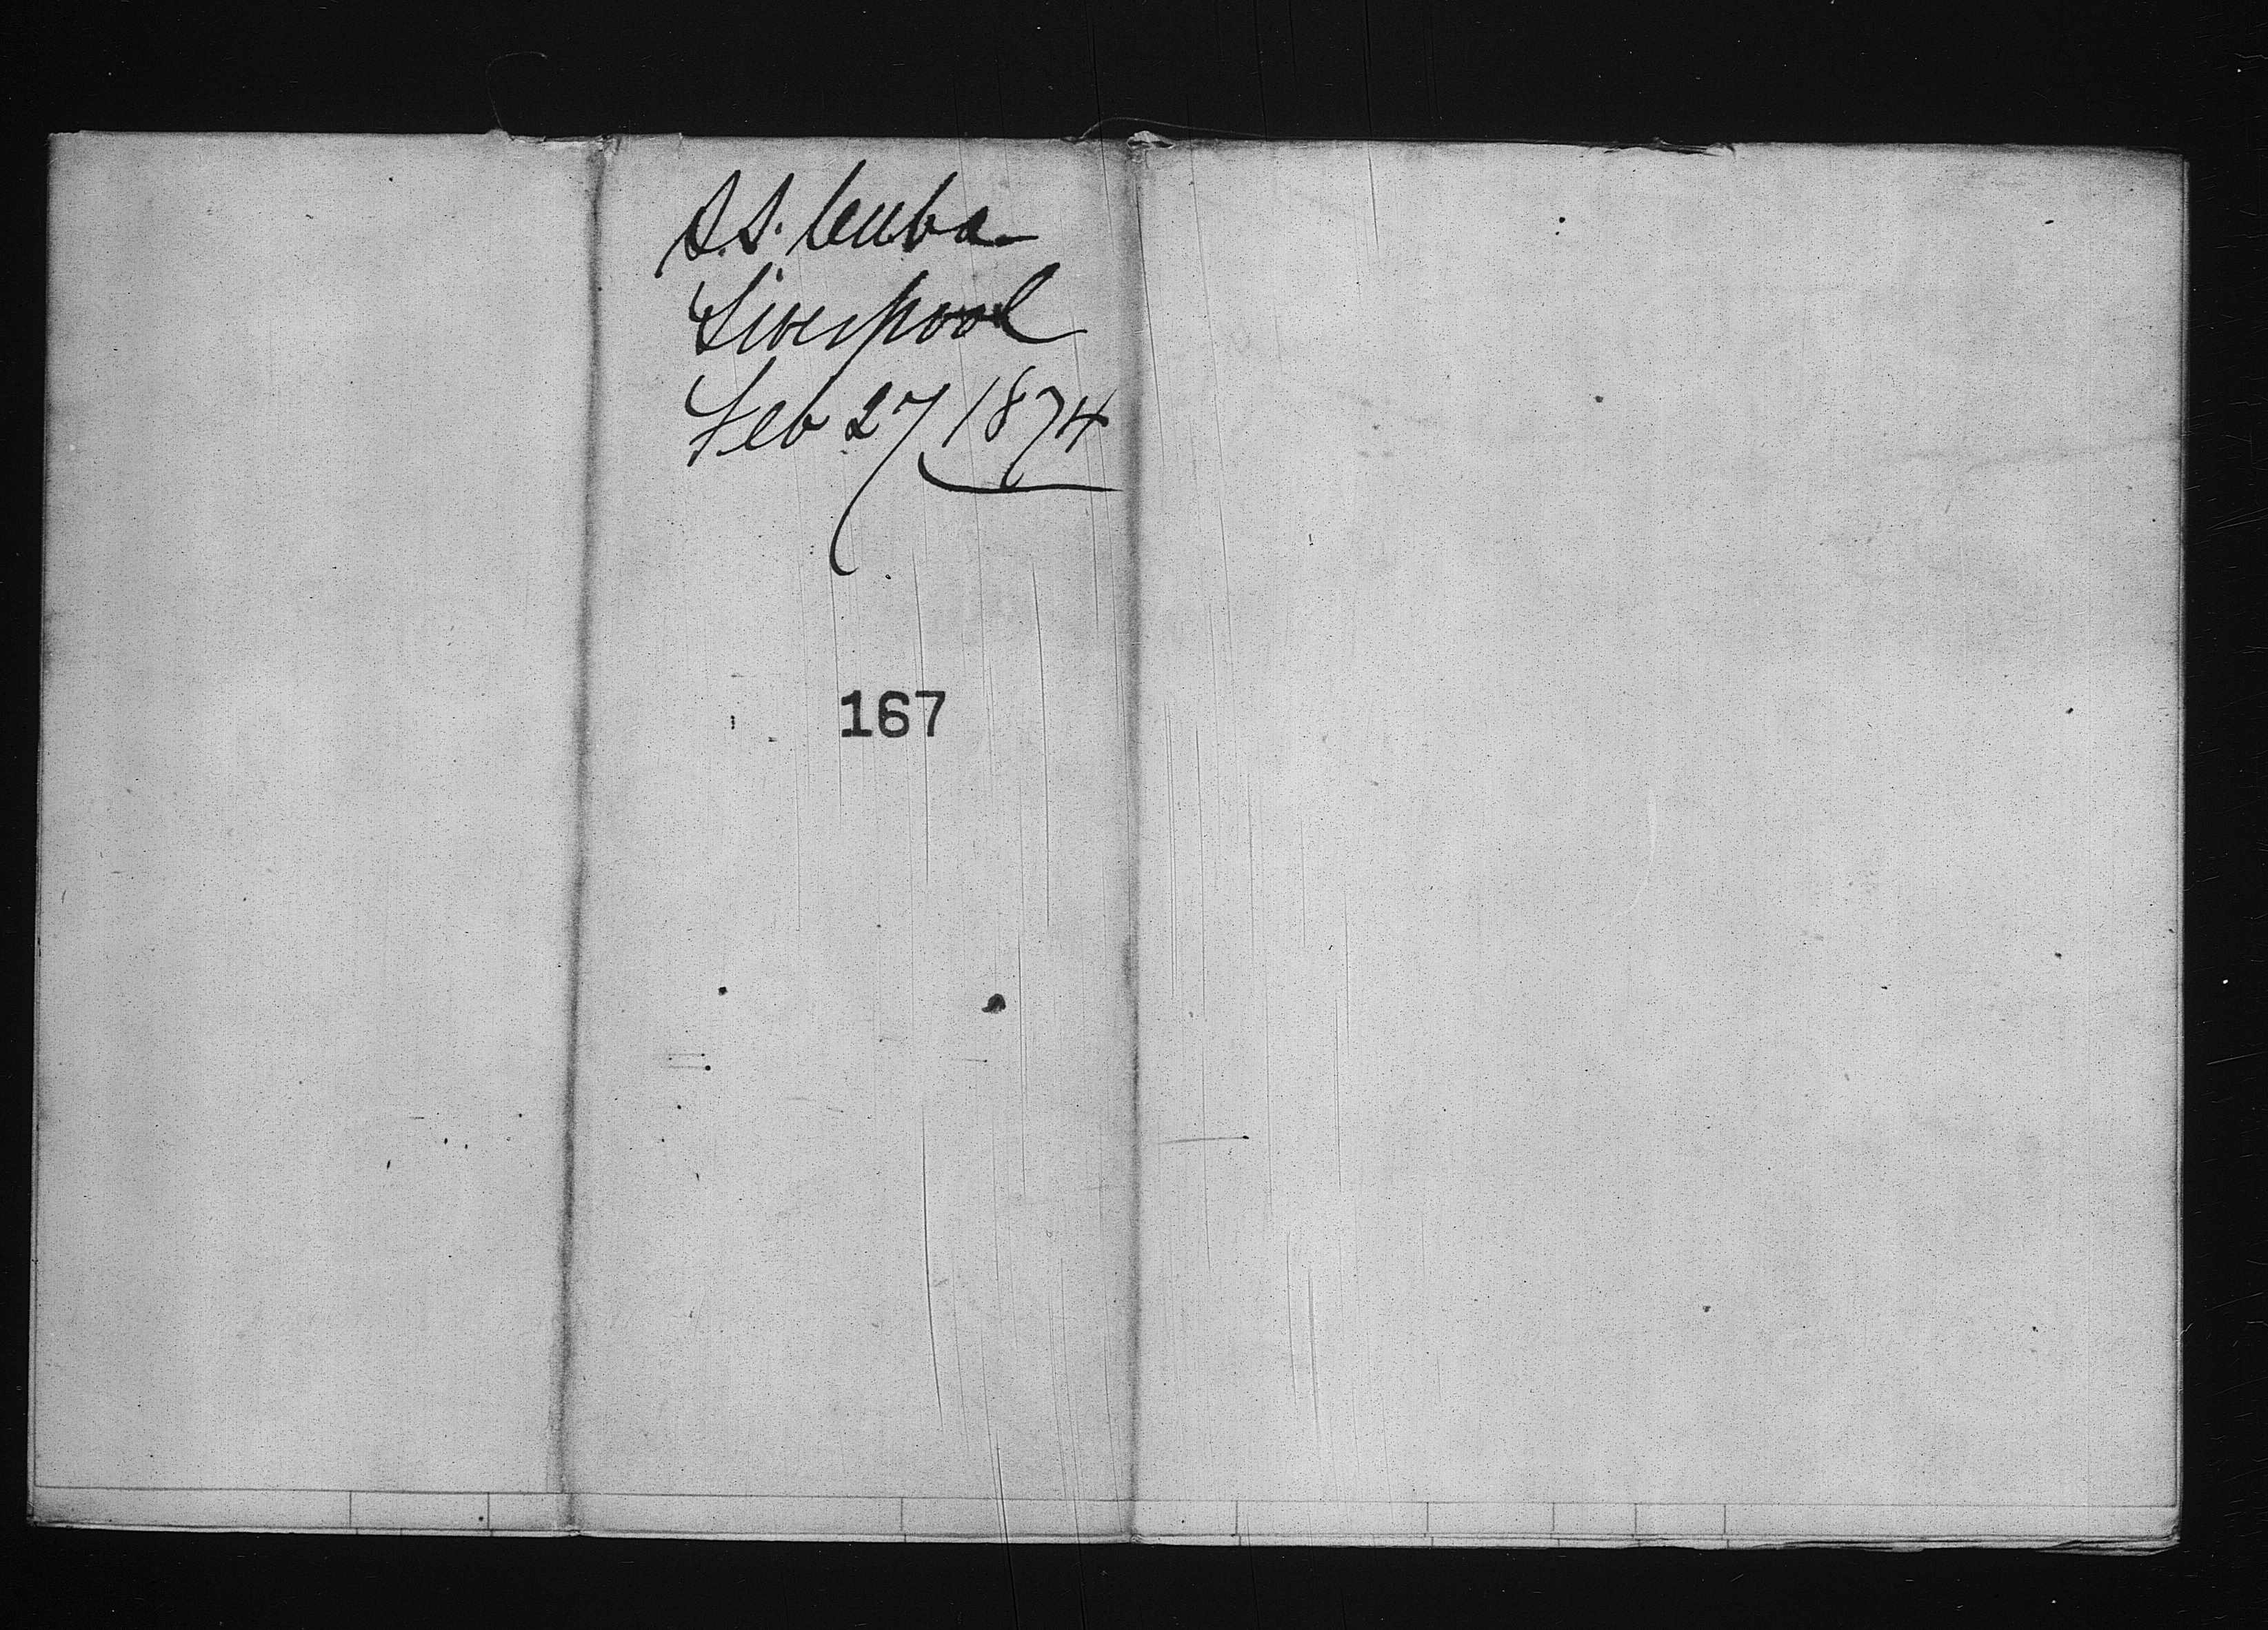 S.S. Cuba
Liverpool
Feb 27 1874
167